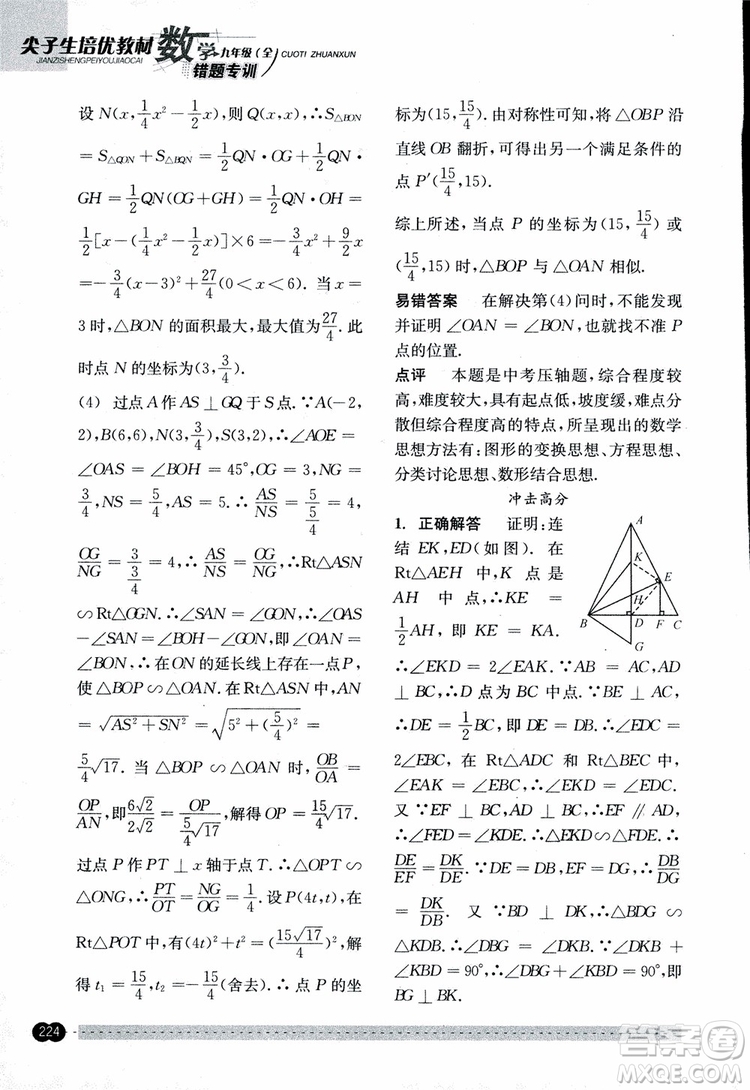 尖子生培优教材
JIANZISHENGPEIYOUJIAOCAI
数学 九年级(全) CUOTI ZHUANXUN
错题专训
设 N(x, 1/4x²－1/2x),则 Q(x,x),∴S△BON
＝S△QON＋S△BQN＝1/2QN·OG＋1/2QN·
GH＝1/2QN(OG＋GH)＝1/2QN·OH＝
1/2[x－(1/4x²－1/2x)]×6＝－3/4x²＋9/2x
＝－3/4(x－3)²＋27/4(0＜x＜6). 当 x＝
3 时,△BON 的面积最大,最大值为27/4. 此
时点 N 的坐标为(3,3/4).
(4) 过点 A 作 AS⊥GQ 于 S 点. ∵A(－2,
2),B(6,6),N(3,3/4),S(3,2),∴∠AOE＝
∠OAS＝∠BOH＝45°,OG＝3,AS＝5,NG＝
3/4,NS＝5/4,AS＝5.∴AS/NS＝5/(5/4)＝4,
OG/NG＝3/(3/4)＝4,∴AS/NS＝OG/NG,∴Rt△ASN
∽Rt△OGN.∴∠SAN＝∠GON,∴∠OAS
－∠SAN＝∠BOH－∠GON,即∠OAN＝
∠BON,∴在 ON 的延长线上存在一点 P,
使△BOP∽△OAN.在 Rt△ASN 中,AN
＝√(AS²＋SN²)＝√(5²＋(5/4)²)＝
5/4√17. 当△BOP∽△OAN 时,OB/OA＝
OP/AN,即6√2/2√2＝OP/(5/4√17),解得 OP＝15/4√17.
过点 P 作 PT⊥x 轴于点 T.∴△OPT∽
△ONG,∴PT/OT＝NG/OG＝1/4.设 P(4t,t),在
Rt△POT 中,有(4t)²＋t²＝(15√17/4)²,解
得 t₁＝15/4,t₂＝－15/4(舍去).∴点 P 的坐
标为(15,15/4).由对称性可知,将△OBP 沿
直线 OB 翻折,可得出另一个满足条件的
点 P′(15/4,15).
综上所述,当点 P 的坐标为(15,15/4)或
(15/4,15)时,△BOP 与△OAN 相似.
易错答案 在解决第(4)问时,不能发现
并证明∠OAN＝∠BON,也就找不准 P
点的位置.
点评 本题是中考压轴题,综合程度较
高,难度较大,具有起点低,坡度缓,难点分
散但综合素养高的特点,所呈现出的数学
思想方法有:图形的变换思想、方程思想、
分类讨论思想、数形结合思想.
冲击高分
1. 正确解答 证明:连
结 EK,ED(如图). 在
Rt△AEH 中,K 点是
AH 中点,∴KE＝
1/2AH,即 KE＝KA.
A
K
E
H
B D F C
G
∴∠AKE＝2∠EAK.∵AB＝AC,AD
⊥BC,∴D 点为 BC 中点.∵BE⊥AC,
∴DE＝1/2BC,即 DE＝DB.∴∠EDC＝
2∠EBC,在 Rt△ADC 和 Rt△BEC 中,
∠EAK＝∠EBC,∴∠EKA＝∠CDE.
又∵EF⊥BC,AD⊥BC,∴EF∥AD.
∴∠FED＝∠KDE.∴△EKD∽△FDE.
DE/EF＝DK/DE.∵DE＝DB,EF＝DG,∴DB/DG
＝DK/DB. 又∵BD⊥DK,∴△DBG∽
△KDB.∴∠DBG＝∠BKD.∵∠BKD＋
∠KBD＝90°,∴∠DBG＋∠KBD＝90°,即
BK⊥BG.
224
MXQE.COM